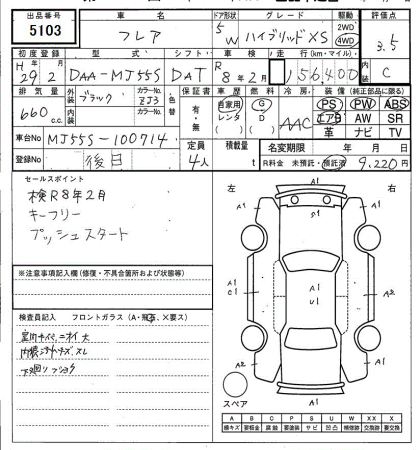 出品番号 車名 ドア形状 グレード 駆動 評価点
5103 フレア 5 W ハイブリッドXS 2WD 4WD 3.5
初度登録 型式 シフト 車検 走行(km・マイル) 内装
H 29年2月 DAA-MJ55S DAT R 8年2月 156,400 C
排気量 外装 ブラック カラーNo. ZJ3 色替 保証書 車歴 燃料 冷房 装備(純正部品に限る)
660 c.c. 内装 カラーNo. 有・無 自家用 G AAC PS PW ABS
レンタ D エアB AW SR
( ) ( ) 革 ナビ TV
車台No MJ55S-100714 定員 積載量 名変期限 年 月 日
登録No 後日 4人 t R料金 未預託・預託済 9,220円
セールスポイント
検R8年2月
キーフリー
プッシュスタート
左 右
A1
※注意事項記入欄(修復・不具合箇所および状態等)
A1
C1
A1
U1
A1
A2
検査員記入 フロントガラス(A・飛石、×要ス)
A1
A1
A1
スペア
A B C P S U W XX X
線キズ 要鈑金 腐蝕 要塗装 サビ 凹凸 補修跡 交換跡 要交換